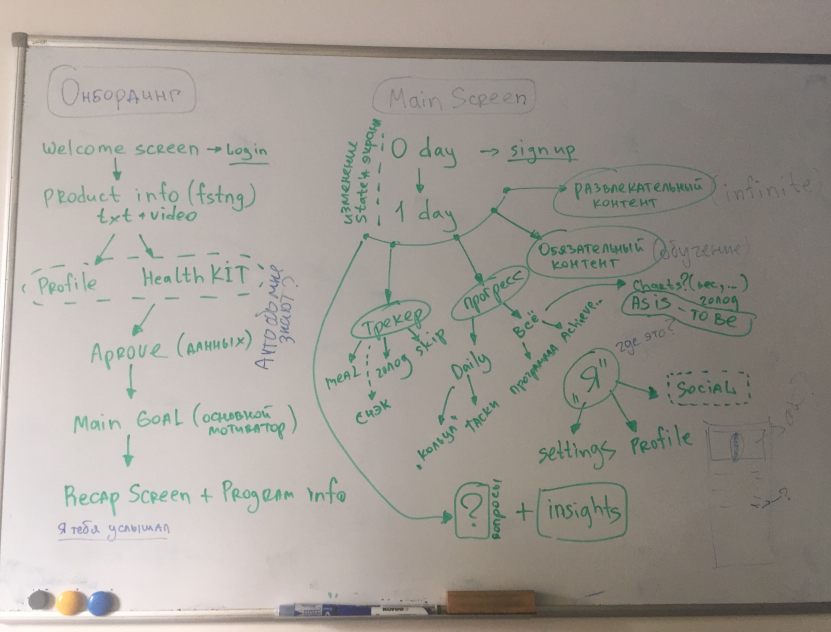 Онбординг
Welcome screen → Login
Product info (fstng)
txt + video
Profile
Health KIT
Aprove (данных)
Main GOAL (основной
мотиватор)
Recap Screen + Program info
Я тебя услышал
Main Screen
изменение
State'а экрана
0 day → sign up
1 day
развлекательный
контент
infinite
Обязательный
контент
(обучение)
трекер
meal
снэк
голод
skip
прогресс
Daily
"кольца"
таски
Всё
программа
Achieve..
Charts? (вес, ...)
голод
AS is - TO BE
где это?
"Я"
Social
settings
Profile
?
вопросы
+ insights